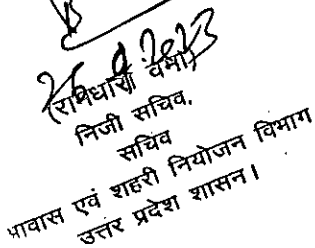 (रामधारी वर्मा)
निजी सचिव,
सचिव
आवास एवं शहरी नियोजन विभाग
उत्तर प्रदेश शासन।